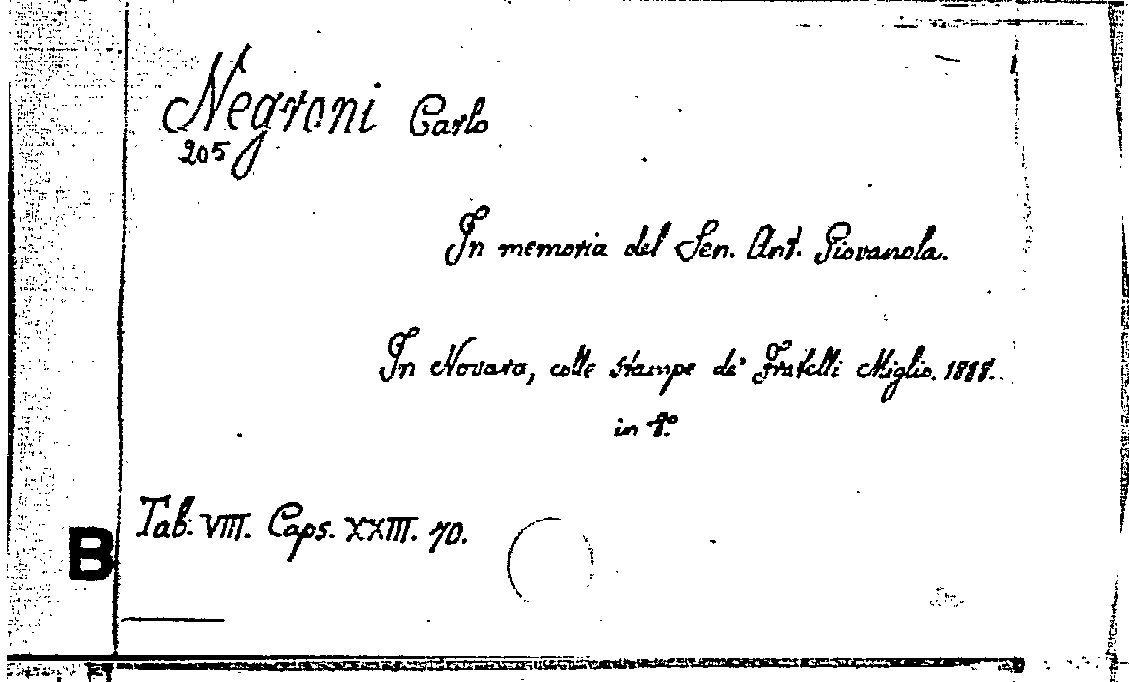 Negroni Carlo
205
In memoria del Sen. Ant. Giovanola.
In Novara, colle stampe de' Fratelli Miglio. 1888.
in 8.º
Tab. VIII. Caps. XXIII. 70.
B